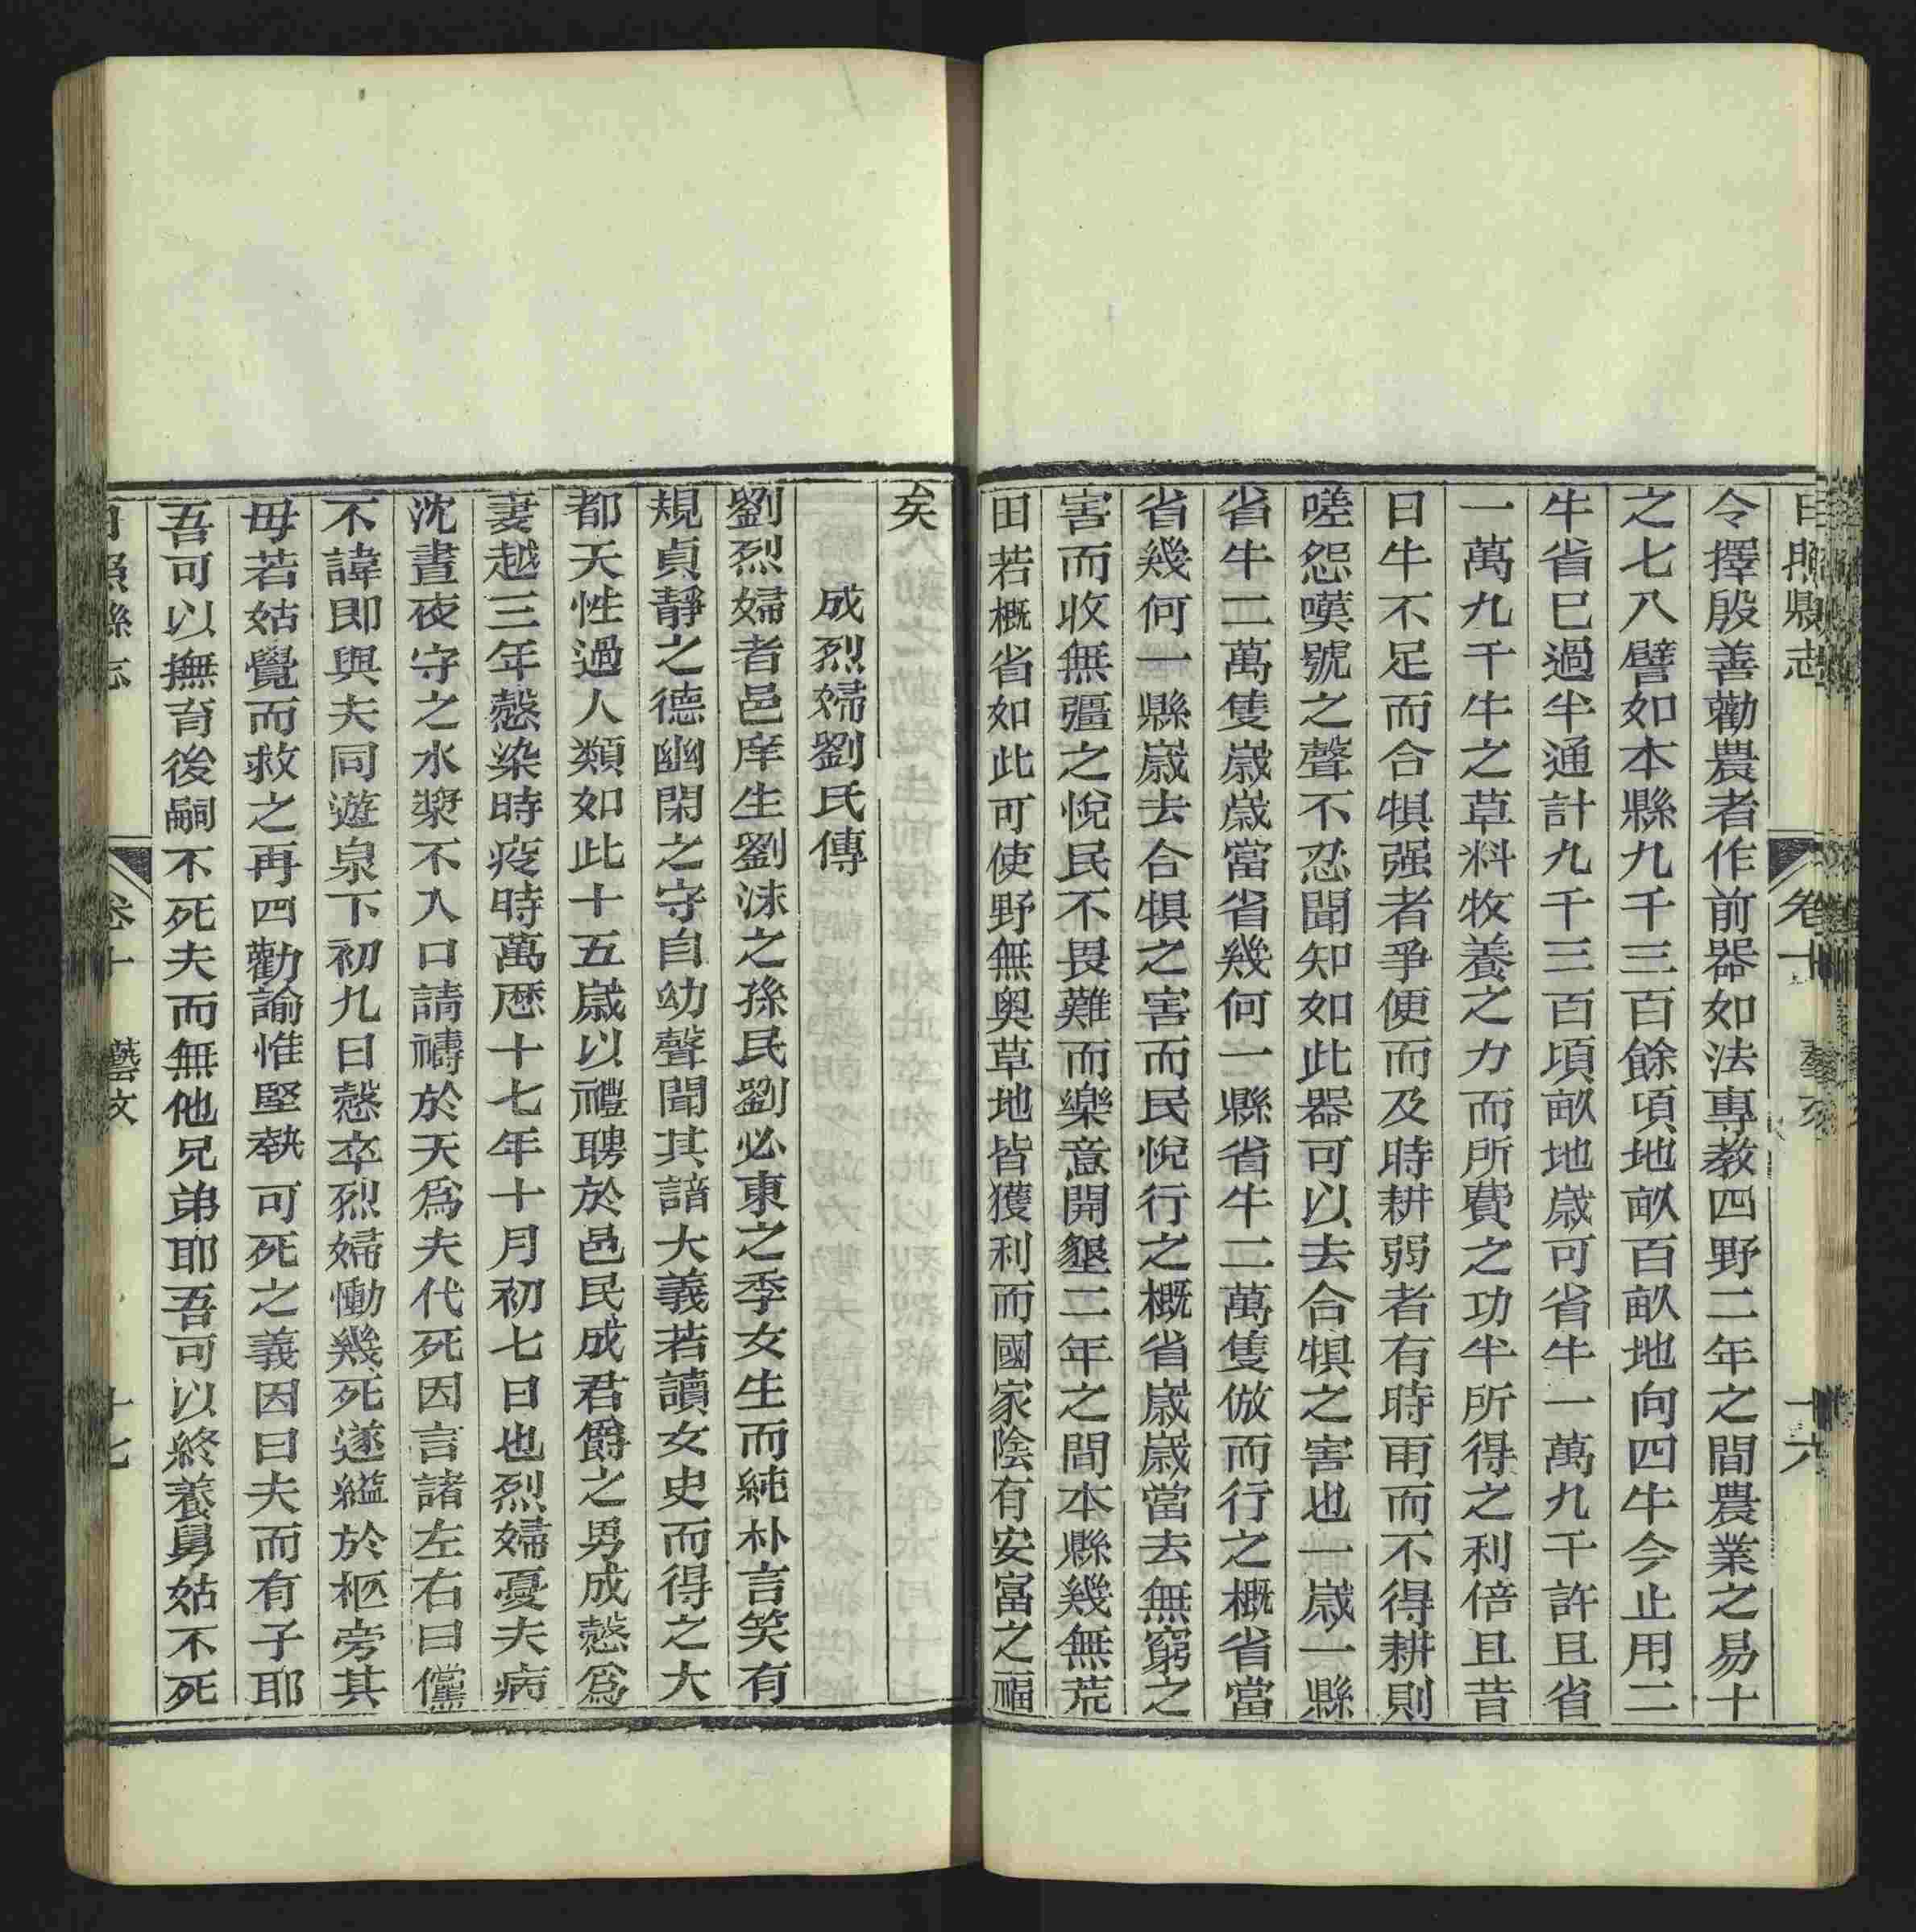 日照縣志 卷十 藝文 十六
令擇殷善勸農者作前器如法專教四野二年之間農業之易十
之七八譬如本縣九千三百餘項地畝百畝地向四牛今止用二
牛省巳過半通計九千三百頃畝地歳可省牛一萬九千許且省
一萬九千牛之草料牧養之力而所費之功半所得之利倍且昔
日牛不足而合犋强者爭便而及時耕弱者有時雨而不得耕則
嗟怨嘆號之聲不忍聞知如此器可以去合犋之害也一歳一縣
省牛二萬隻歳歳當省幾何一縣省牛二萬隻倣而行之概省當
省幾何一縣歳去合犋之害而民悅行之概省歳歳當去無窮之
害而收無疆之悅民不畏難而樂意開墾二年之間本縣幾無荒
田若概省如此可使野無奥草地皆獲利而國家陰有安富之福
矣
成烈婦劉氏傳
劉烈婦者邑庠生劉沫之孫民劉必東之季女生而純朴言笑有
規貞靜之德幽閑之守自幼聲聞其諳大義若讀女史而得之大
都天性過人類如此十五歳以禮聘於邑民成君爵之男成慤爲
妻越三年慤染時疫時萬歴十七年十月初七日也烈婦憂夫病
沈晝夜守之水漿不入口請禱於天爲夫代死因言諸左右曰儻
不諱即與夫同遊泉下初九日慤卒烈婦慟幾死遂縊於柩旁其
毋若姑覺而救之再四勸諭惟堅執可死之義因曰夫而有子耶
吾可以撫育後嗣不死夫而無他兄弟耶吾可以終養舅姑不死
日照縣志 卷十 藝文 十七